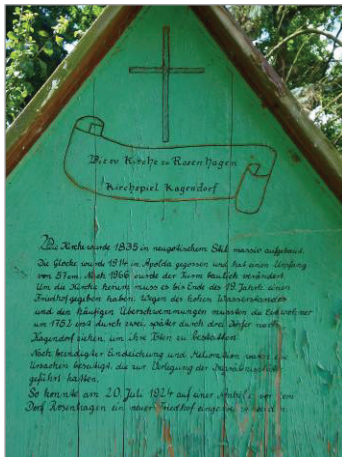 Die ev. Kirche zu Rosenhagen
Kirchspiel Kagendorf
Die Kirche wurde 1835 in neugotischem Stil massiv aufgebaut.
Die Glocke wurde 1914 in Apolda gegossen und hat einen Umfang
von 57cm. Nach 1966 wurde der Turm baulich verändert.
Um die Kirche herum muss es bis Ende des 18. Jahrh. einen
Friedhof gegeben haben. Wegen des hohen Wasserstandes
und den häufigen Überschwemmungen mussten die Einwohner
um 1753 erst durch zwei, später durch drei Dörfer nach
Kagendorf ziehen, um ihre Toten zu bestatten.
Nach beendigter Eindeichung und Melioration waren die
Ursachen beseitigt, die zur Verlegung der
geführt hatten.
So konnte am 20. Juli 1924 auf einer Anhöhe vor dem
Dorf Rosenhagen ein neuer Friedhof eingeweiht werden.